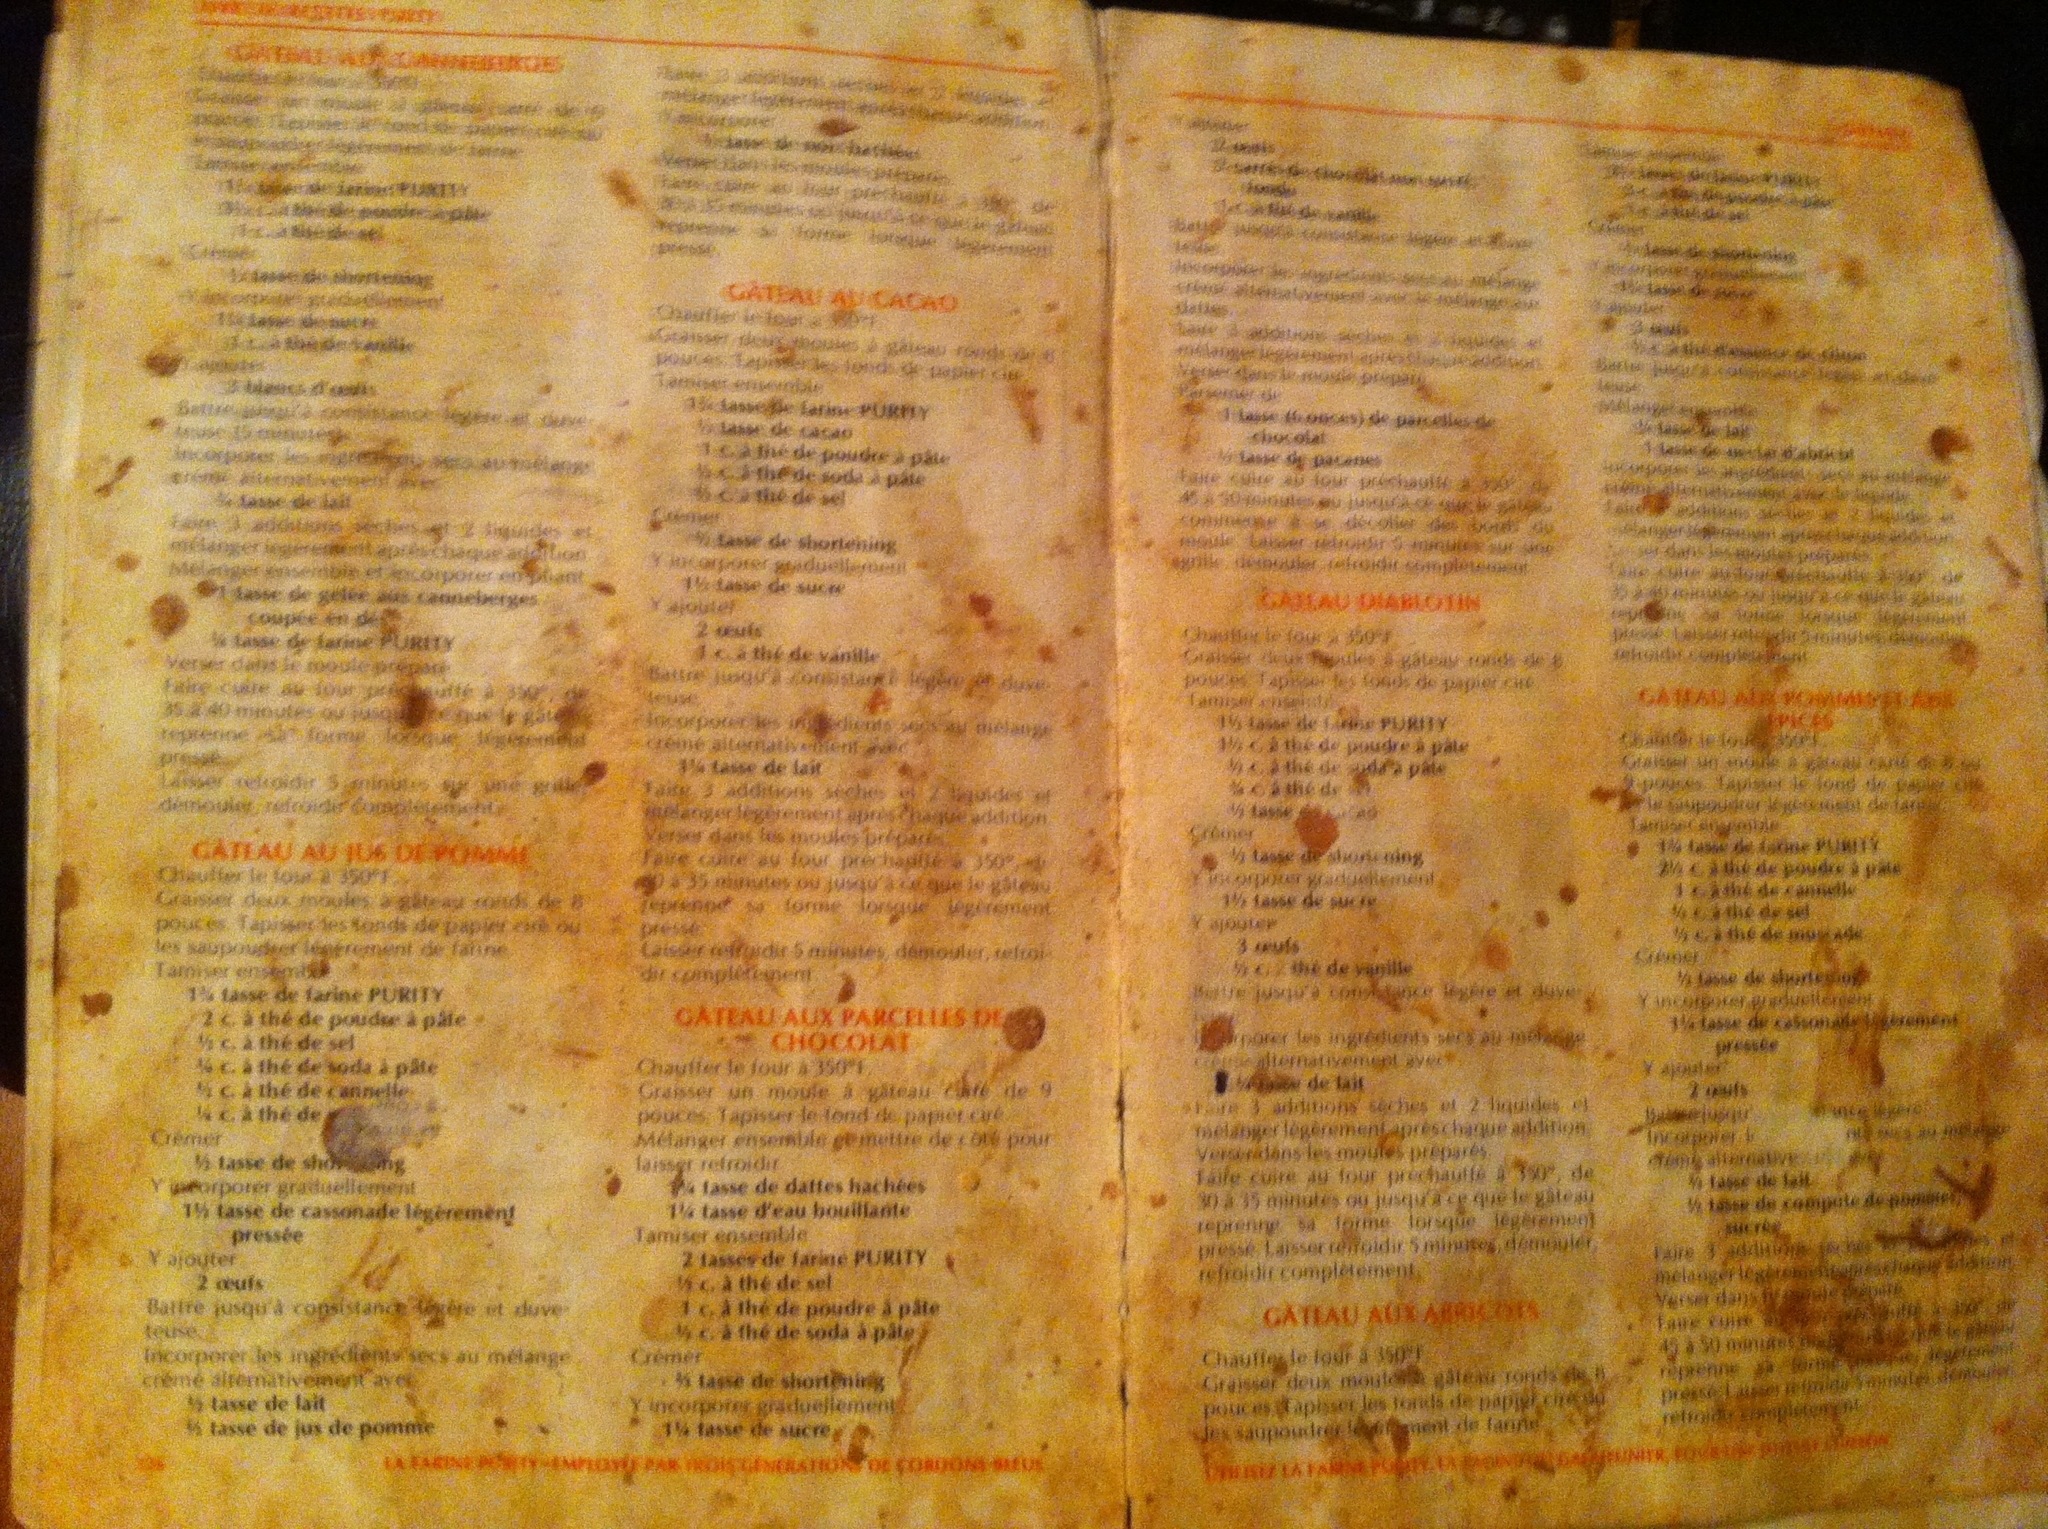 LIVRE DE RECETTES PURITY
GÂTEAU AUX CANNEBERGES
Chauffer le four à 350°F.
Graisser un moule à gâteau carré de
pouces. Tapisser le fond de papier ciré ou
saupoudrer légèrement de farine.
Tamiser ensemble
tasse de farine PURITY
c. à thé de poudre à pâte
1 c. à thé de sel
Crémer
tasse de shortening
Y incorporer graduellement
tasse de sucre
1 c. à thé de vanille
Y ajouter
3 blancs d'œufs
Battre jusqu'à consistance légère et duve-
teuse (5 minutes).
Incorporer les ingrédients secs au mélange
crémé alternativement avec
¾ tasse de lait
Faire 3 additions sèches et 2 liquides et
mélanger légèrement après chaque addition.
Mélanger ensemble et incorporer en pliant
1 tasse de gelée aux canneberges
coupée en dés
¼ tasse de farine PURITY
Verser dans le moule préparé.
Faire cuire au four préchauffé à 350°, de
35 à 40 minutes ou jusqu'à ce que le gâteau
reprenne sa forme lorsque légèrement
pressé.
Laisser refroidir 5 minutes sur une grille,
démouler, refroidir complètement.
GÂTEAU AU JUS DE POMME
Chauffer le four à 350°F.
Graisser deux moules à gâteau ronds de 8
pouces. Tapisser les fonds de papier ciré ou
les saupoudrer légèrement de farine.
Tamiser ensemble
1¾ tasse de farine PURITY
2 c. à thé de poudre à pâte
½ c. à thé de sel
¼ c. à thé de soda à pâte
½ c. à thé de cannelle
¼ c. à thé de
Crémer
½ tasse de shortening
Y incorporer graduellement
1½ tasse de cassonade légèrement
pressée
Y ajouter
2 œufs
Battre jusqu'à consistance légère et duve-
teuse.
Incorporer les ingrédients secs au mélange
crémé alternativement avec
½ tasse de lait
½ tasse de jus de pomme
Faire 3 additions sèches et 2 liquides et
mélanger légèrement après chaque addition.
Y incorporer
tasse de noix hachées
Verser dans les moules préparés.
Faire cuire au four préchauffé à 350°, de
30 à 35 minutes ou jusqu'à ce que le gâteau
reprenne sa forme lorsque légèrement
pressé.
GÂTEAU AU CACAO
Chauffer le four à 350°F.
Graisser deux moules à gâteau ronds de 8
pouces. Tapisser les fonds de papier ciré.
Tamiser ensemble
1¾ tasse de farine PURITY
½ tasse de cacao
1 c. à thé de poudre à pâte
½ c. à thé de soda à pâte
½ c. à thé de sel
Crémer
½ tasse de shortening
Y incorporer graduellement
1½ tasse de sucre
Y ajouter
2 œufs
1 c. à thé de vanille
Battre jusqu'à consistance légère et duve-
teuse.
Incorporer les ingrédients secs au mélange
crémé alternativement avec
1¼ tasse de lait
Faire 3 additions sèches et 2 liquides et
mélanger légèrement après chaque addition.
Verser dans les moules préparés.
Faire cuire au four préchauffé à 350°, de
30 à 35 minutes ou jusqu'à ce que le gâteau
reprenne sa forme lorsque légèrement
pressé.
Laisser refroidir 5 minutes, démouler, refroi-
dir complètement.
GÂTEAU AUX PARCELLES DE
CHOCOLAT
Chauffer le four à 350°F.
Graisser un moule à gâteau carré de 9
pouces. Tapisser le fond de papier ciré.
Mélanger ensemble et mettre de côté pour
laisser refroidir
1¼ tasse de dattes hachées
1¼ tasse d'eau bouillante
Tamiser ensemble
2 tasses de farine PURITY
½ c. à thé de sel
1 c. à thé de poudre à pâte
½ c. à thé de soda à pâte
Crémer
tasse de shortening
Y incorporer graduellement
1¼ tasse de sucre
LA FARINE PURITY - EMPLOYÉE PAR TROIS GÉNÉRATIONS DE CORDONS-BLEUS
Y ajouter
2 œufs
2 carrés de chocolat non sucré,
fondu
1 c. à thé de vanille
Battre jusqu'à consistance légère et duve-
teuse.
Incorporer les ingrédients secs au mélange
crémé alternativement avec le mélange aux
dattes.
Faire 3 additions sèches et 2 liquides et
mélanger légèrement après chaque addition.
Verser dans le moule préparé.
Parsemer de
1 tasse (6 onces) de parcelles de
chocolat
½ tasse de pacanes
Faire cuire au four préchauffé à 350°, de
45 à 50 minutes ou jusqu'à ce que le gâteau
commence à se décoller des bords du
moule. Laisser refroidir 5 minutes sur une
grille, démouler, refroidir complètement.
GÂTEAU DIABLOTIN
Chauffer le four à 350°F.
Graisser deux moules à gâteau ronds de 8
pouces. Tapisser les fonds de papier ciré.
Tamiser ensemble
1½ tasse de farine PURITY
1½ c. à thé de poudre à pâte
½ c. à thé de soda à pâte
¾ c. à thé de sel
½ tasse de cacao
Crémer
½ tasse de shortening
Y incorporer graduellement
1½ tasse de sucre
Y ajouter
3 œufs
½ c. à thé de vanille
Battre jusqu'à consistance légère et duve-
Incorporer les ingrédients secs au mélange
crémé alternativement avec
¾ tasse de lait
Faire 3 additions sèches et 2 liquides et
mélanger légèrement après chaque addition.
Verser dans les moules préparés.
Faire cuire au four préchauffé à 350°, de
30 à 35 minutes ou jusqu'à ce que le gâteau
reprenne sa forme lorsque légèrement
pressé. Laisser refroidir 5 minutes, démouler,
refroidir complètement.
GÂTEAU AUX ABRICOTS
Chauffer le four à 350°F.
Graisser deux moules à gâteau ronds de 8
pouces. Tapisser les fonds de papier ciré ou
les saupoudrer légèrement de farine.
Tamiser ensemble
tasse de farine PURITY
c. à thé de poudre à pâte
1 c. à thé de sel
Crémer
tasse de shortening
Y incorporer graduellement
tasse de sucre
Y ajouter
œufs
½ c. à thé d'essence de citron
Battre jusqu'à consistance légère et duve-
teuse.
Mélanger ensemble
tasse de lait
1 tasse de nectar d'abricot
Incorporer les ingrédients secs au mélange
crémé alternativement avec le liquide.
Faire 3 additions sèches et 2 liquides et
mélanger légèrement après chaque addition.
Verser dans les moules préparés.
Faire cuire au four préchauffé à 350°, de
35 à 40 minutes ou jusqu'à ce que le gâteau
reprenne sa forme lorsque légèrement
pressé. Laisser refroidir 5 minutes, démouler,
refroidir complètement.
GÂTEAU AUX POMMES ET AUX
ÉPICES
Chauffer le four à 350°F.
Graisser un moule à gâteau carré de 8 ou
9 pouces. Tapisser le fond de papier ciré
ou le saupoudrer légèrement de farine.
Tamiser ensemble
1¾ tasse de farine PURITY
2½ c. à thé de poudre à pâte
1 c. à thé de cannelle
½ c. à thé de sel
½ c. à thé de muscade
Crémer
½ tasse de shortening
Y incorporer graduellement
1¼ tasse de cassonade légèrement
pressée
Y ajouter
2 œufs
Battre jusqu' légère
Incorporer secs au mélange
crémé alternative
½ tasse de lait
½ tasse de compote de pommes,
sucrée
Faire 3 additions sèches et liquides et
mélanger légèrement après chaque addition.
Verser dans le moule préparé.
Faire cuire au four préchauffé à 350°, de
45 à 50 minutes que le gâteau
reprenne sa forme légèrement
pressé. Laisser refroidir 5 minutes, démouler,
refroidir complètement.
UTILISEZ LA FARINE PURITY, LA FARINE